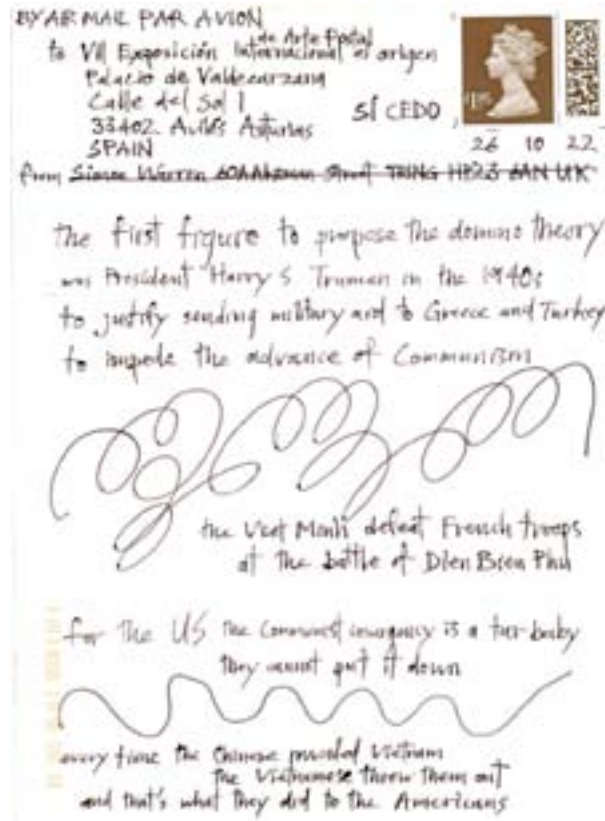 BY AIR MAIL PAR AVION
to VII Exposición Internacional de Arte Postal el origen
Palacio de Valdecarzana
Calle del Sol 1
33402 Avilés Asturias
SPAIN
SÍ CEDO
26 10 22
from Simon Warren 60A Akeman Street TRING HP23 6AN UK
the first figure to purpose the domino theory
was President Harry S Truman in the 1940s
to justify sending military aid to Greece and Turkey
to impede the advance of Communism
the Viet Minh defeat French troops
at the battle of Dien Bien Phu
for the US the Communist insurgency is a tar-baby
they cannot put it down
every time the Chinese invaded Vietnam
the Vietnamese threw them out
and that's what they did to the Americans